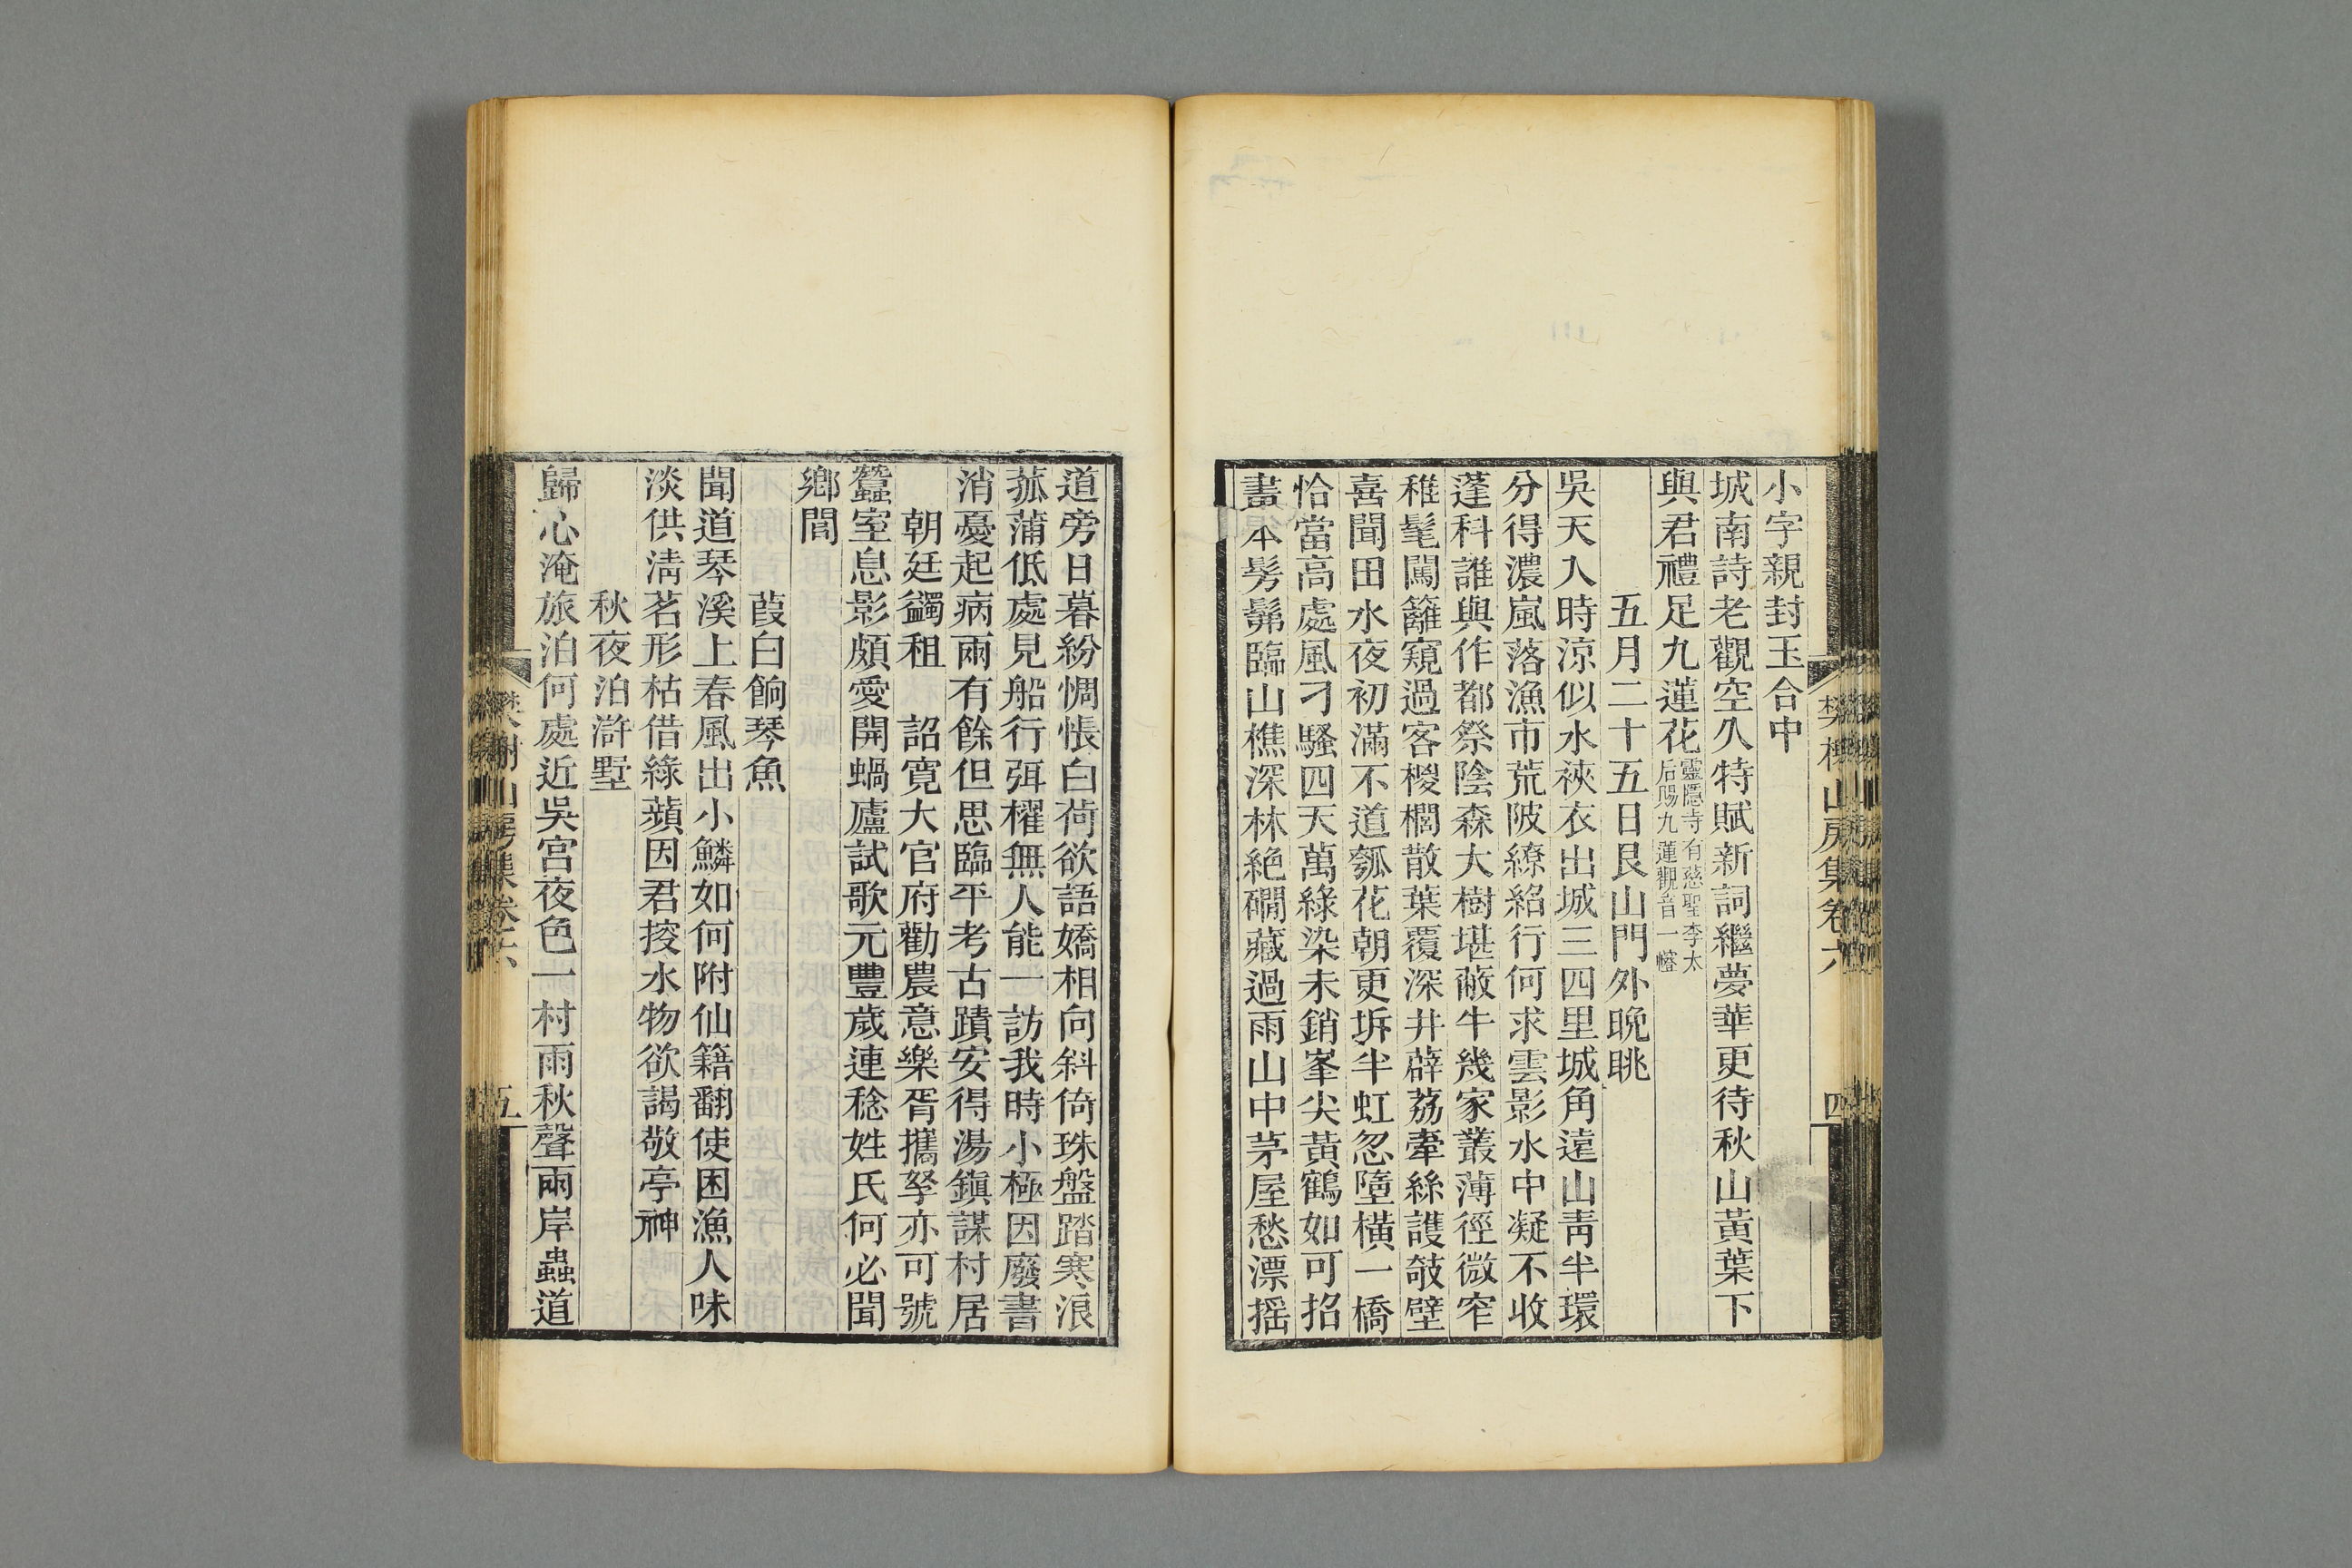 樊榭山房集卷六
四
小字親封玉合中
城南詩老觀空久特賦新詞繼夢華更待秋山黃葉下
與君禮足九蓮花靈隱寺有慈聖李太后賜九蓮觀音一幢
五月二十五日艮山門外晚眺
吳天入時涼似水裌衣出城三四里城角遠山靑半環
分得濃嵐落漁市荒陂繚紹行何求雲影水中凝不收
蓬科誰與作都祭陰森大樹堪蔽牛幾家叢薄徑微窄
稚髦闖籬窺過客椶櫚散葉覆深井薜荔牽絲護攲壁
喜聞田水夜初滿不道瓠花朝更坼半虹忽墮橫一橋
恰當高處風刁騷四天萬綠染未銷峯尖黃鶴如可招
畫本髣髴臨山樵深林絕磵藏過雨山中茅屋愁漂搖
道旁日暮紛惆悵白荷欲語嬌相向斜倚珠盤踏寒浪
菰蒲低處見船行弭櫂無人能一訪我時小極因廢書
消憂起病兩有餘但思臨平考古蹟安得湯鎭謀村居
朝廷蠲租　詔寛大官府勸農意樂胥攜孥亦可號
蠶室息影頗愛開蝸廬試歌元豐歲連稔姓氏何必聞
鄉閭
葭白餉琴魚
聞道琴溪上春風出小鱗如何附仙籍翻使困漁人味
淡供淸茗形枯借綠蘋因君挍水物欲謁敬亭神
秋夜泊滸墅
歸心淹旅泊何處近吳宮夜色一村雨秋聲兩岸蟲道
樊榭山房集卷六
五